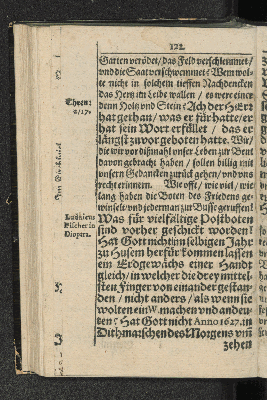 122
Garten verödet / das Feld verschlemmet /
vnd die Saat verschwemmet: Wem wol-
te nicht in solchem tieffen Nachdencken
das Hertz im Leibe wallen / es were einer
denn Holtz vnd Stein? Ach der HErr
hat gethan / was er für hatte / er
hat sein Wort erfüllet / das er
längst zuvor geboten hatte. Wir /
die wir vor dißmahl vnser Leben zur Beut
davon gebracht haben / sollen billig mit
vnsern Gedancken zurück gehen / vnd vns
recht erinnern. Wie offt / wie viel / wie
lang haben die Boten des Friedens ge-
winselt / vnd jederman zur Busse geruffen?
Was für vielfältige Postboten
sind vorher geschickt worden?
Hat Gott nicht im selbigen Jahr
zu Husem herfür kommen lassen
ein Erdgewächs einer Handt
gleich / in welcher die drey mittel-
sten Finger von einander gestan-
den / nicht anders / als wenn sie
wolten ein W. machen vnd andeu-
ten? Hat Gott nicht Anno 1627. in
Dithmarschen des Morgens vm
zehen
Thren:
2/17.
Ludhieus
Fischer in
Dioptra.